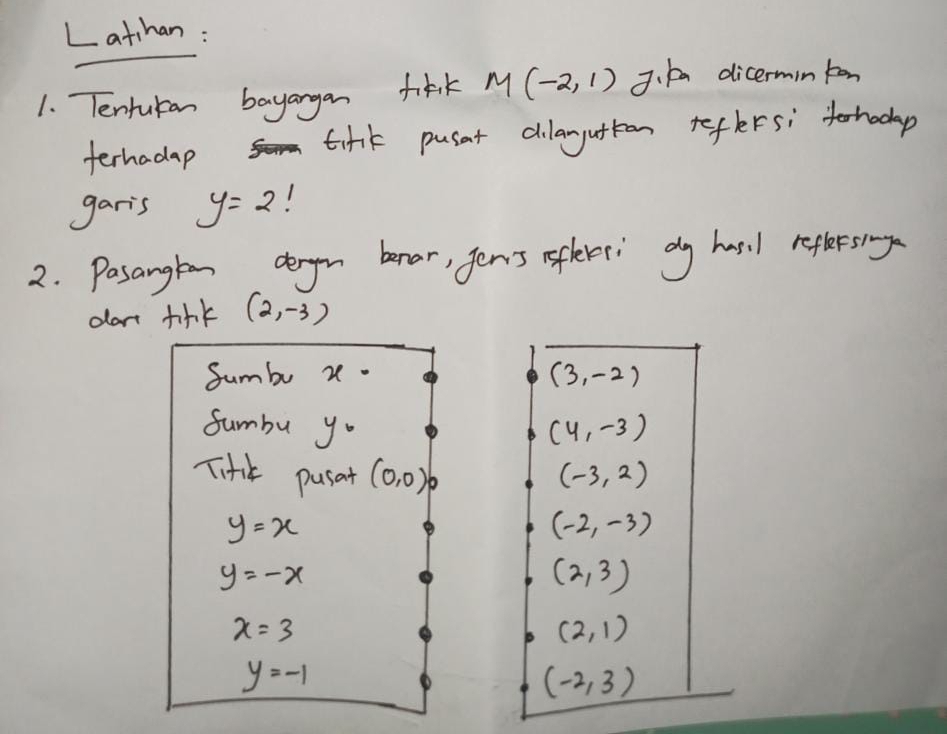 Latihan :
1. Tentukan bayangan titik M (-2, 1) jika dicerminkan
terhadap titik pusat dilanjutkan refleksi terhadap
garis y = 2!
2. Pasangkan dengan benar, jenis refleksi dg hasil refleksinya
dari titik (2,-3)
Sumbu x
(3,-2)
Sumbu y
(4,-3)
Titik pusat (0,0)
(-3, 2)
y = x
(-2, -3)
y = -x
(2,3)
x = 3
(2,1)
y = -1
(-2,3)